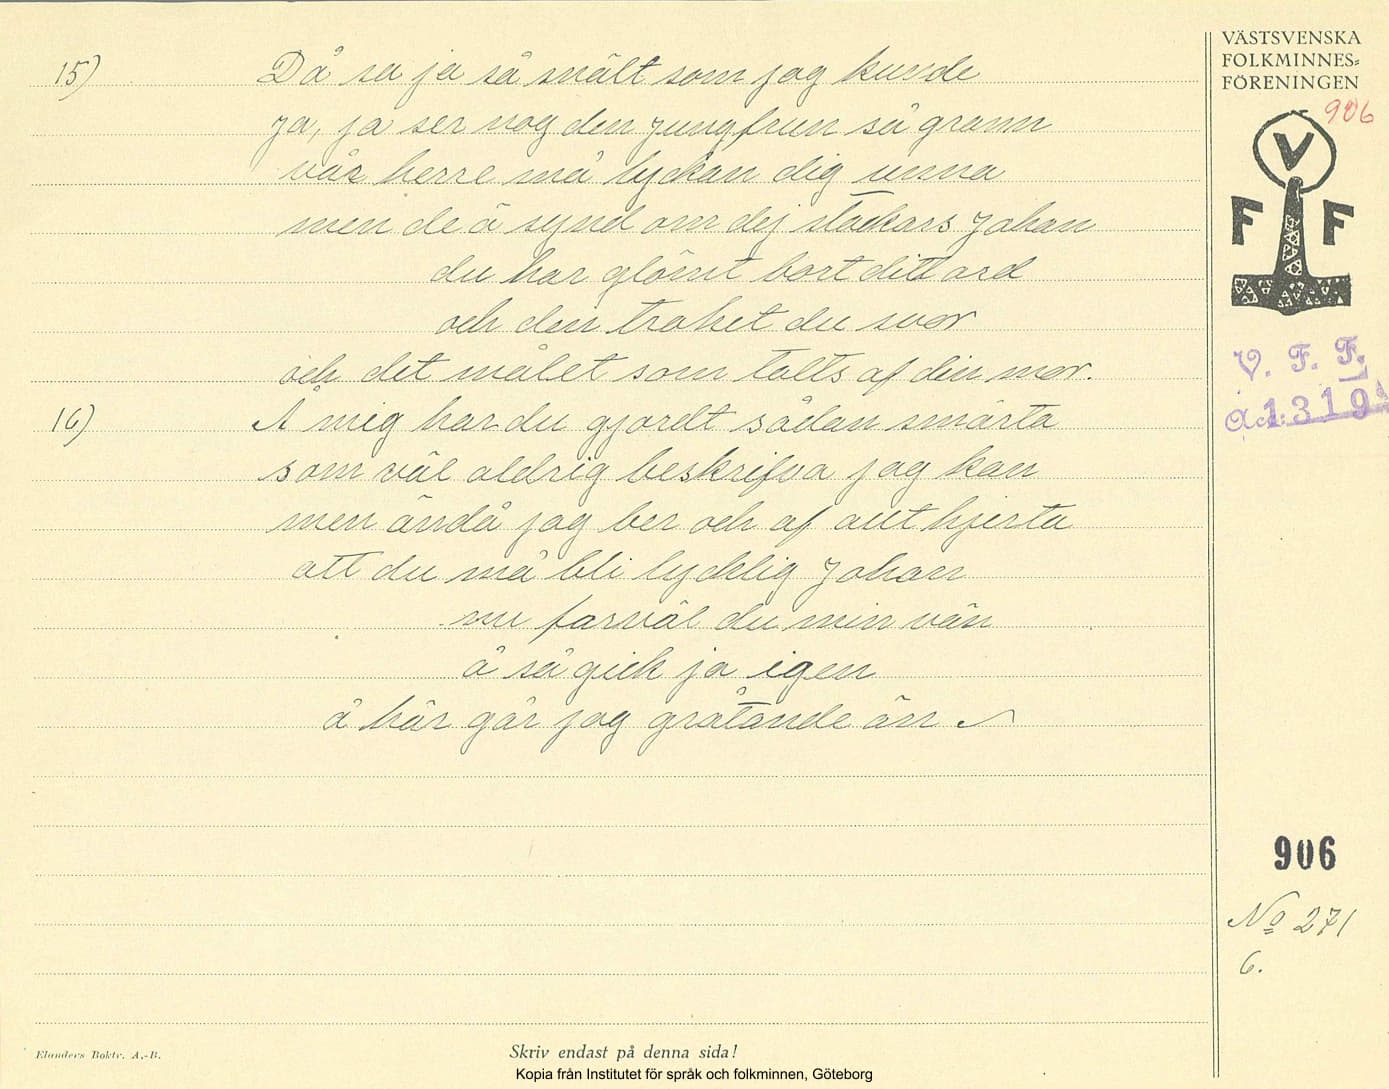 15) Då sa ja så snält som jag kunde
ja, ja ser nog den jungfrun så grann
vår herre må lyckan dig unna
men de ä synd om dej stackars Johan
du har glömt bort ditt ord
och den trohet du svor
och det målet som talts af din mor.
16) Å mig har du gjordt sådan smärta
som väl aldrig beskrifva jag kan
men ändå jag ber och af ant hjerta
att du må bli lycklig Johan
nu farväl du min vän
å så gick ja igen
å här går jag gråtande än
VÄSTSVENSKA
FOLKMINNES-
FÖRENINGEN
906
V
F F
V. F. F.
Acc: 1319
906
No 271
6.
Elanders Boktr. A.-B.
Skriv endast på denna sida!
Kopia från Institutet för språk och folkminnen, Göteborg